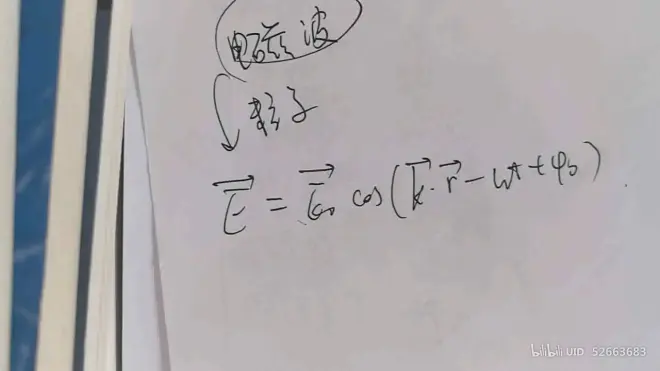 电磁波
粒子
$\vec{E} = \vec{E}_0 \cos(\vec{k} \cdot \vec{r} - \omega t + \varphi_0)$
bilibili UID 52663683